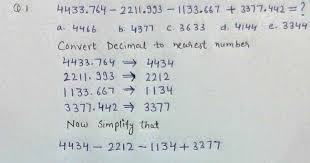 Q1 4433.764 - 2211.993 - 1133.667 + 3377.442 = ?
a. 4466 b. 4377 c. 3633 d. 4144 e. 3344
Convert Decimal to nearest number
4433.764 → 4434
2211.993 → 2212
1133.667 → 1134
3377.442 → 3377
Now Simplify that
4434 - 2212 - 1134 + 3377